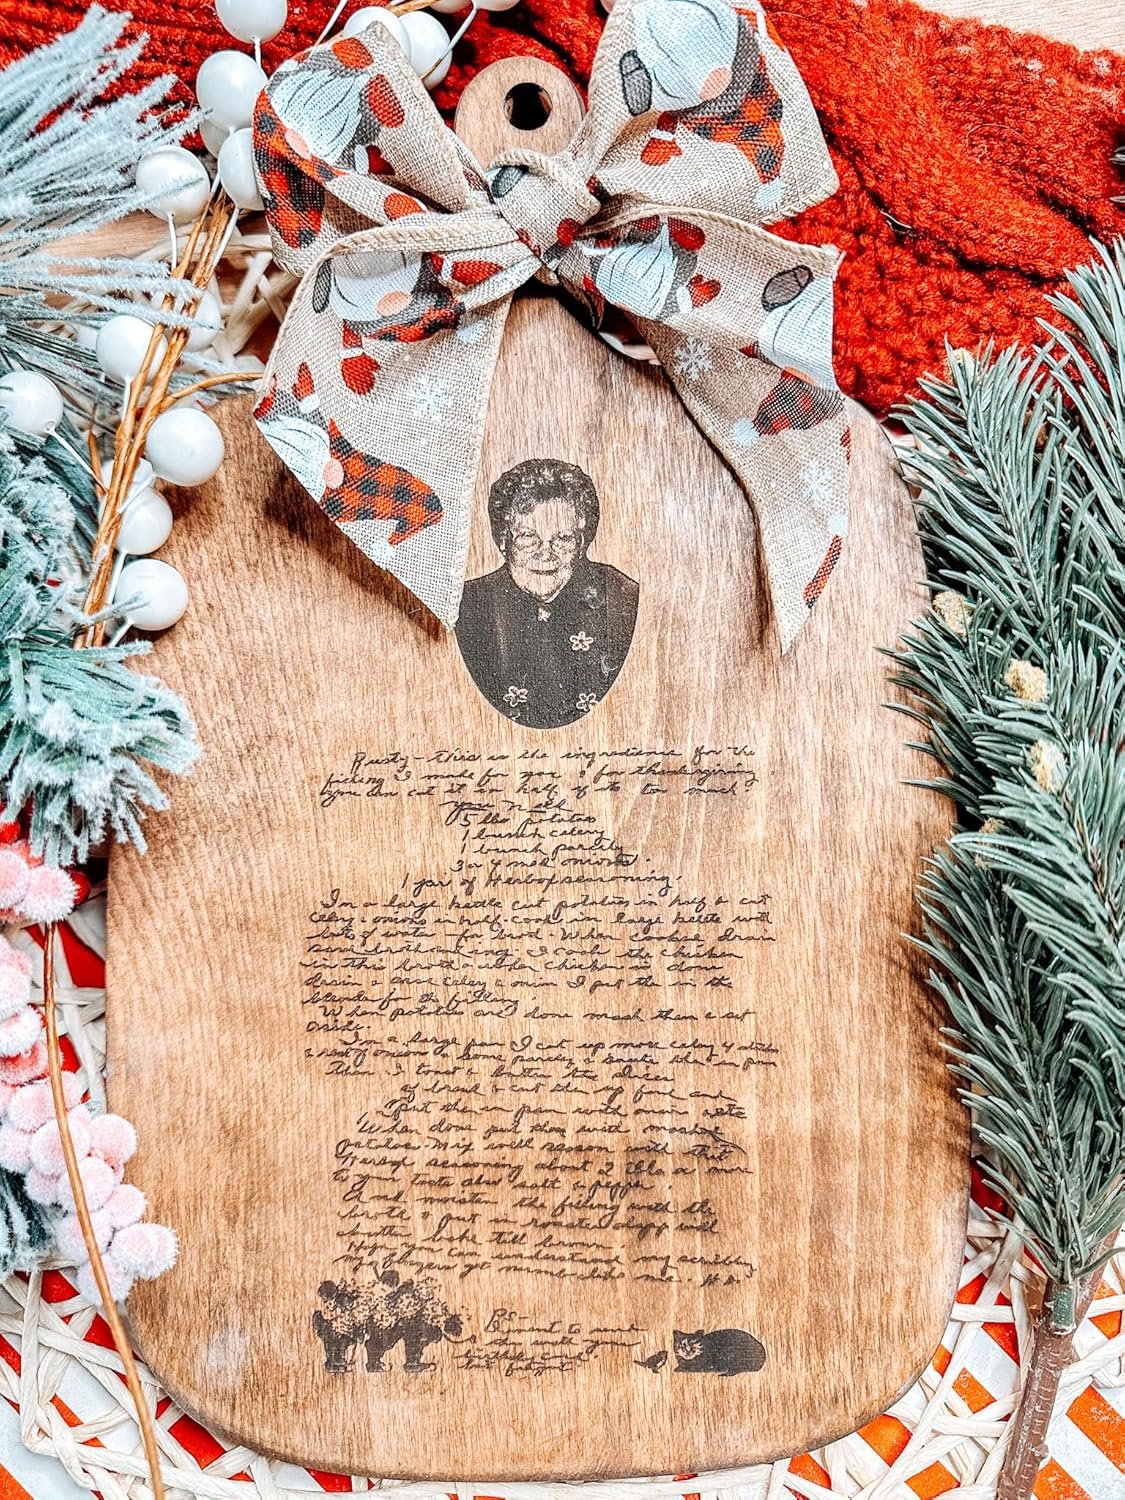 Rusty - this is the ingredience for the
filling I make for you & for thanksgiving.
you can cut it in half if its too much.
you n all
5 lbs potatoes
1 bunch celery
1 bunch parcely
3 or 4 med onions.
1 jar of Herbof seasoning.
In a large kettle cut potatoes in half & cut
celery & onions in half. cook in large kettle with
lots of water - for broth. When cooked drain
save broth I cook the chicken
in this broth & when chicken is done
drain & celery & onion I put the in the
for the filling.
When potatoes are done mash them & set
aside.
In a large pan I cut up more celery 4
& rest of onions & some parcley & saute that in pan
Then I toast & butter the slices
of bread & cut them up fine and
put them in pan with onion
When done put them with mashed
potatoes. Mix well season with that
Herbof seasoning about 2 tbls or more
to your taste also salt & pepper.
And moisten the filling with the
broth & put in roaster well
butter bake till brown
Hope you can understand my scribbling
my fingers get numb like me. H.A.
P.S-
ment to send
this with your
birthday card.
but forgot